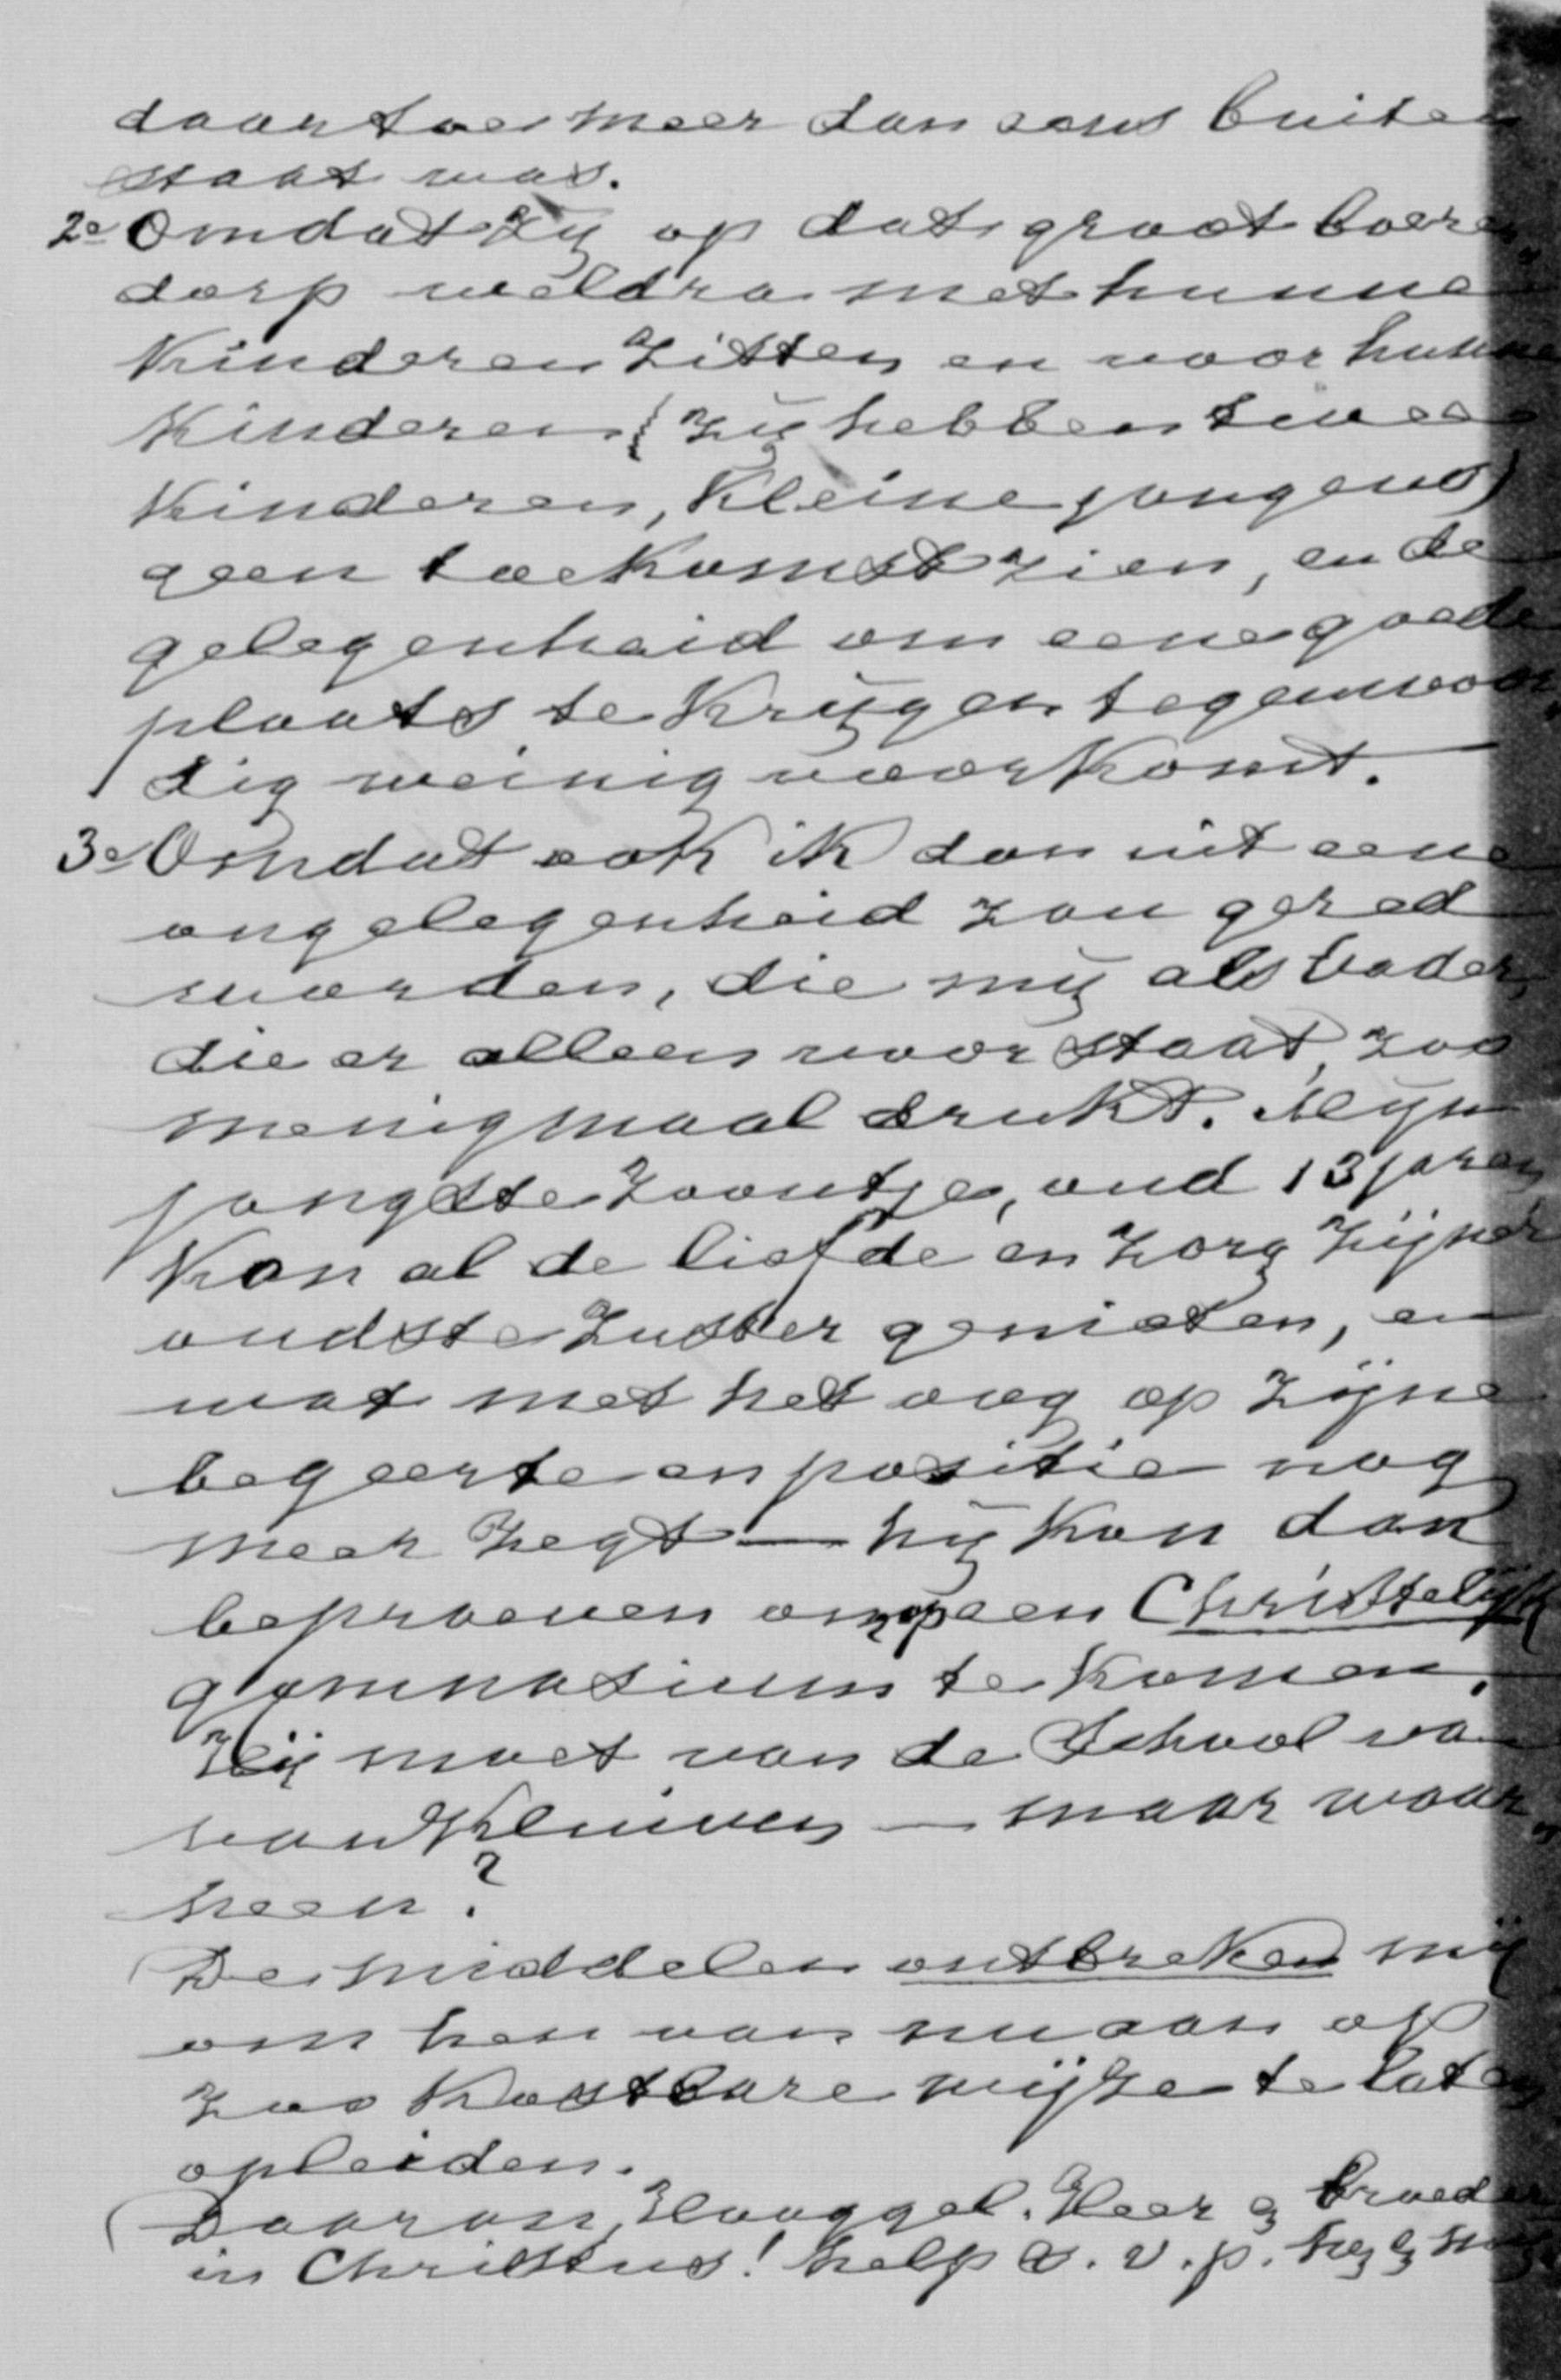 daartoe meer dan eens buiten
staat was.
2e Omdat zij op dat groot boeren
dorp weldra met hunne
Kinderen zitten en voor hunne
Kinderen (zij hebben twee
Kinderen, kleine jongens)
geen toekomst zien, en de
gelegenheid om eene goede
plaats te krijgen tegenwoor
dig weinig voorkomt.
3e Omdat ook ik dan uit eene
ongelegenheid zou gered
worden, die mij als Vader,
die er alleen voor staat, zoo
menigmaal drukt. Mijn
jongste zoontje, oud 13 jaren
Kon al de liefde en zorg zijner
oudste zuster genieten, en
wat met het oog op zijne
begeerte en positie nog
meer zegt — hij kon dan
beproeven om op een Christelijk
gymnasium te komen.
Hij moet van de School van
van Kluiven — maar waar
heen?
De middelen ontbreken mij
om hen van nu aan op
zoo kostbare wijze te laten
opleiden.
Daarom, Hooggel. Heer & broeder
in Christus! help s.v.p. hen &